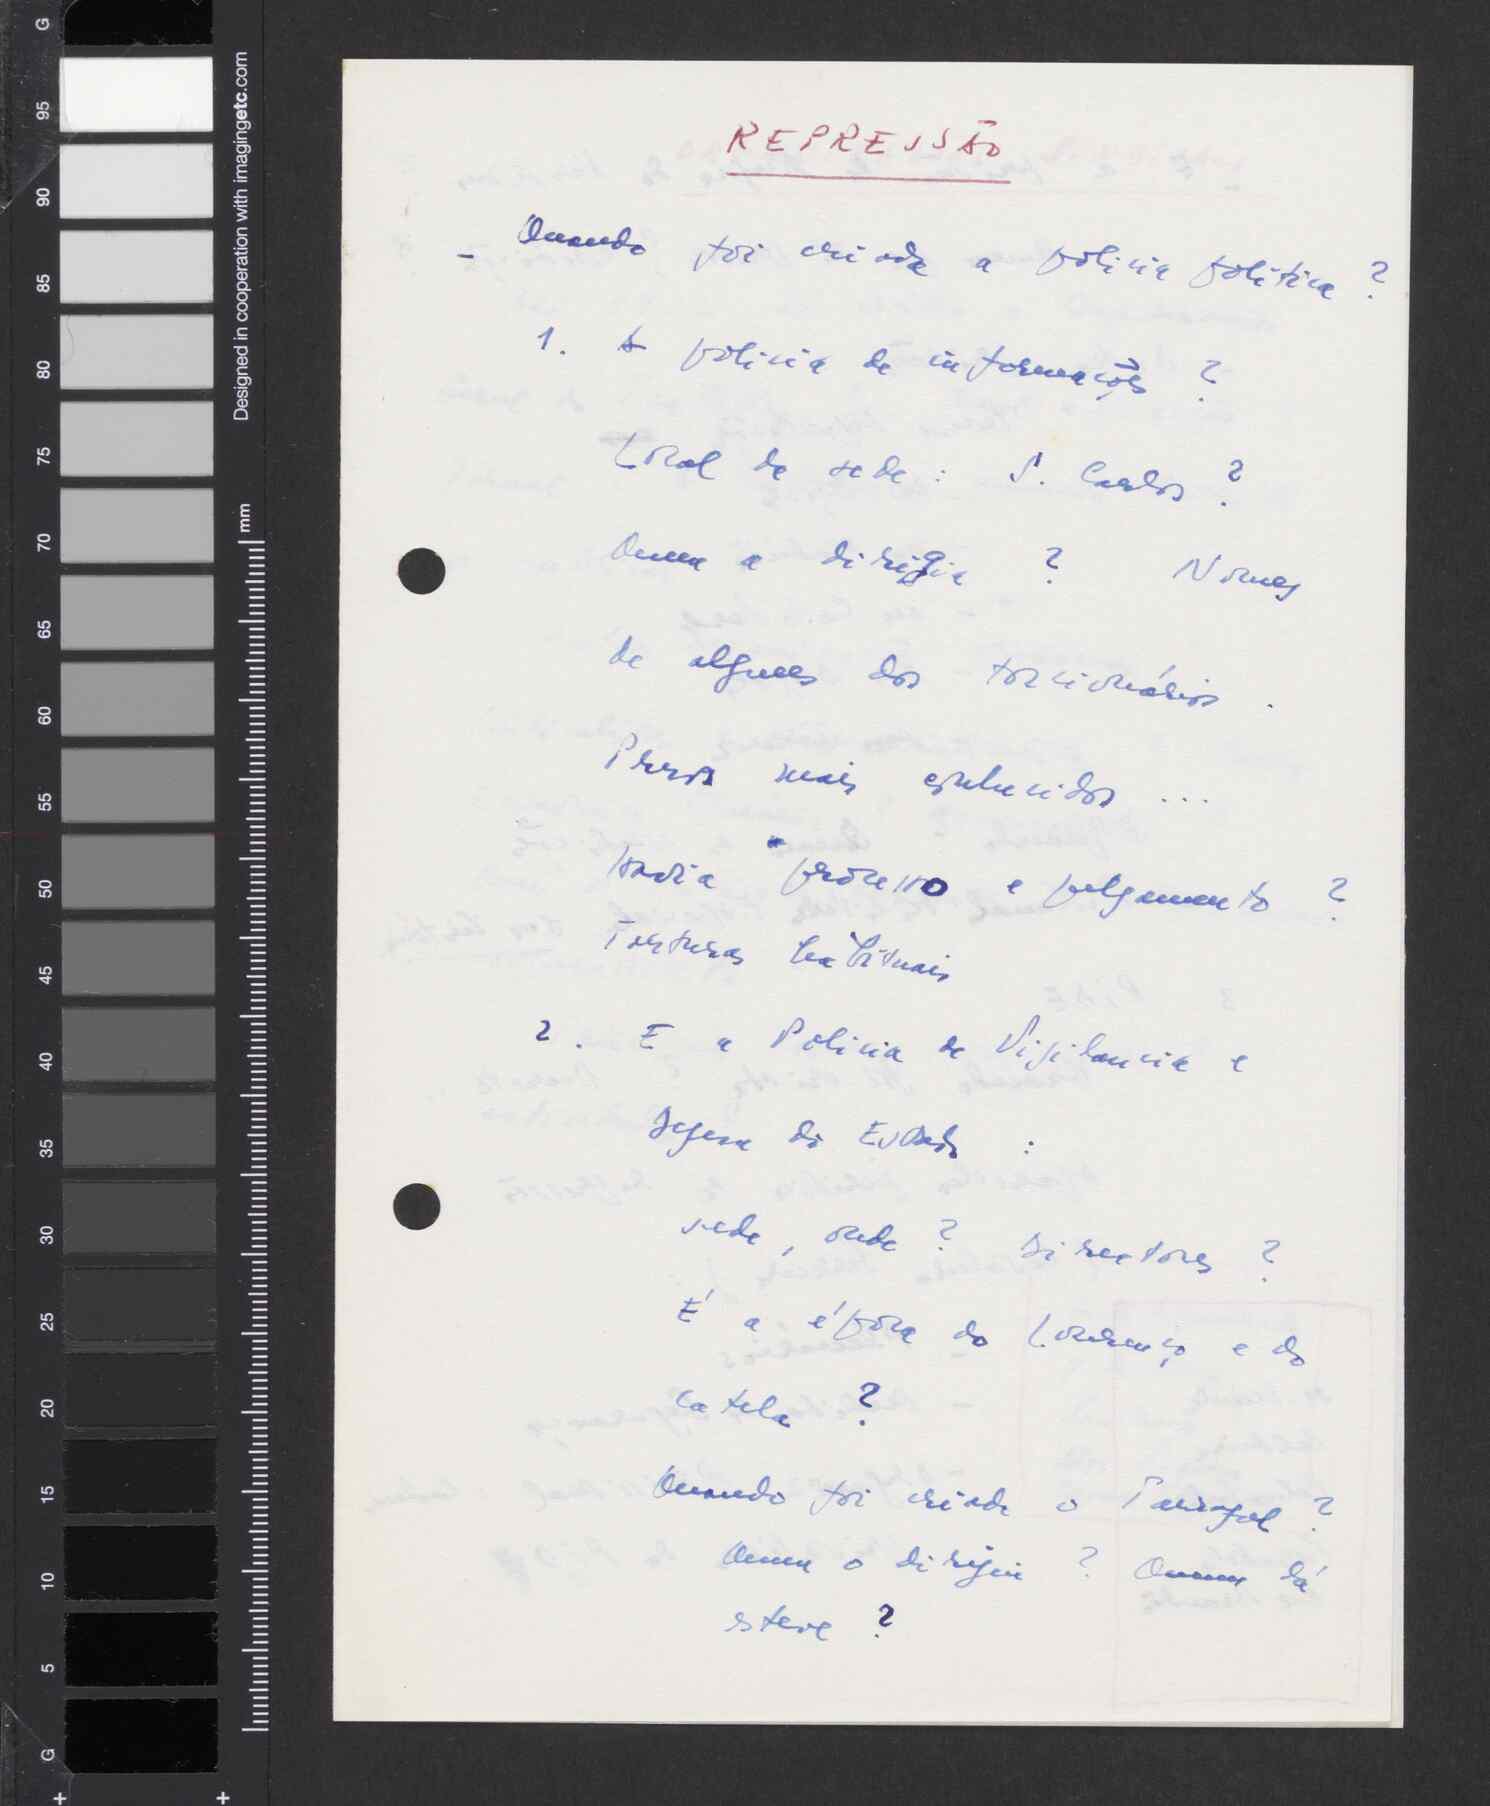 REPRESSÃO
- Quando foi criada a polícia política ?
1. A polícia de informações ?
Local da sede : S. Carlos ?
Quem a dirigia ? Nomes
de alguns dos torcionários .
Presos mais conhecidos ...
Havia processo e julgamento ?
Torturas habituais
2. E a Polícia de Vigilancia e
Defesa do Estado :
sede, onde ? Directores ?
É a época do Lourenço e do
Catela ?
Quando foi criado o Tarrafal ?
Quem o dirigiu ? Quem lá
esteve ?
G
95
90
85
80
75
70
65
60
55
50
45
40
35
30
25
20
15
10
5
G
Designed in cooperation with imagingetc.com
mm